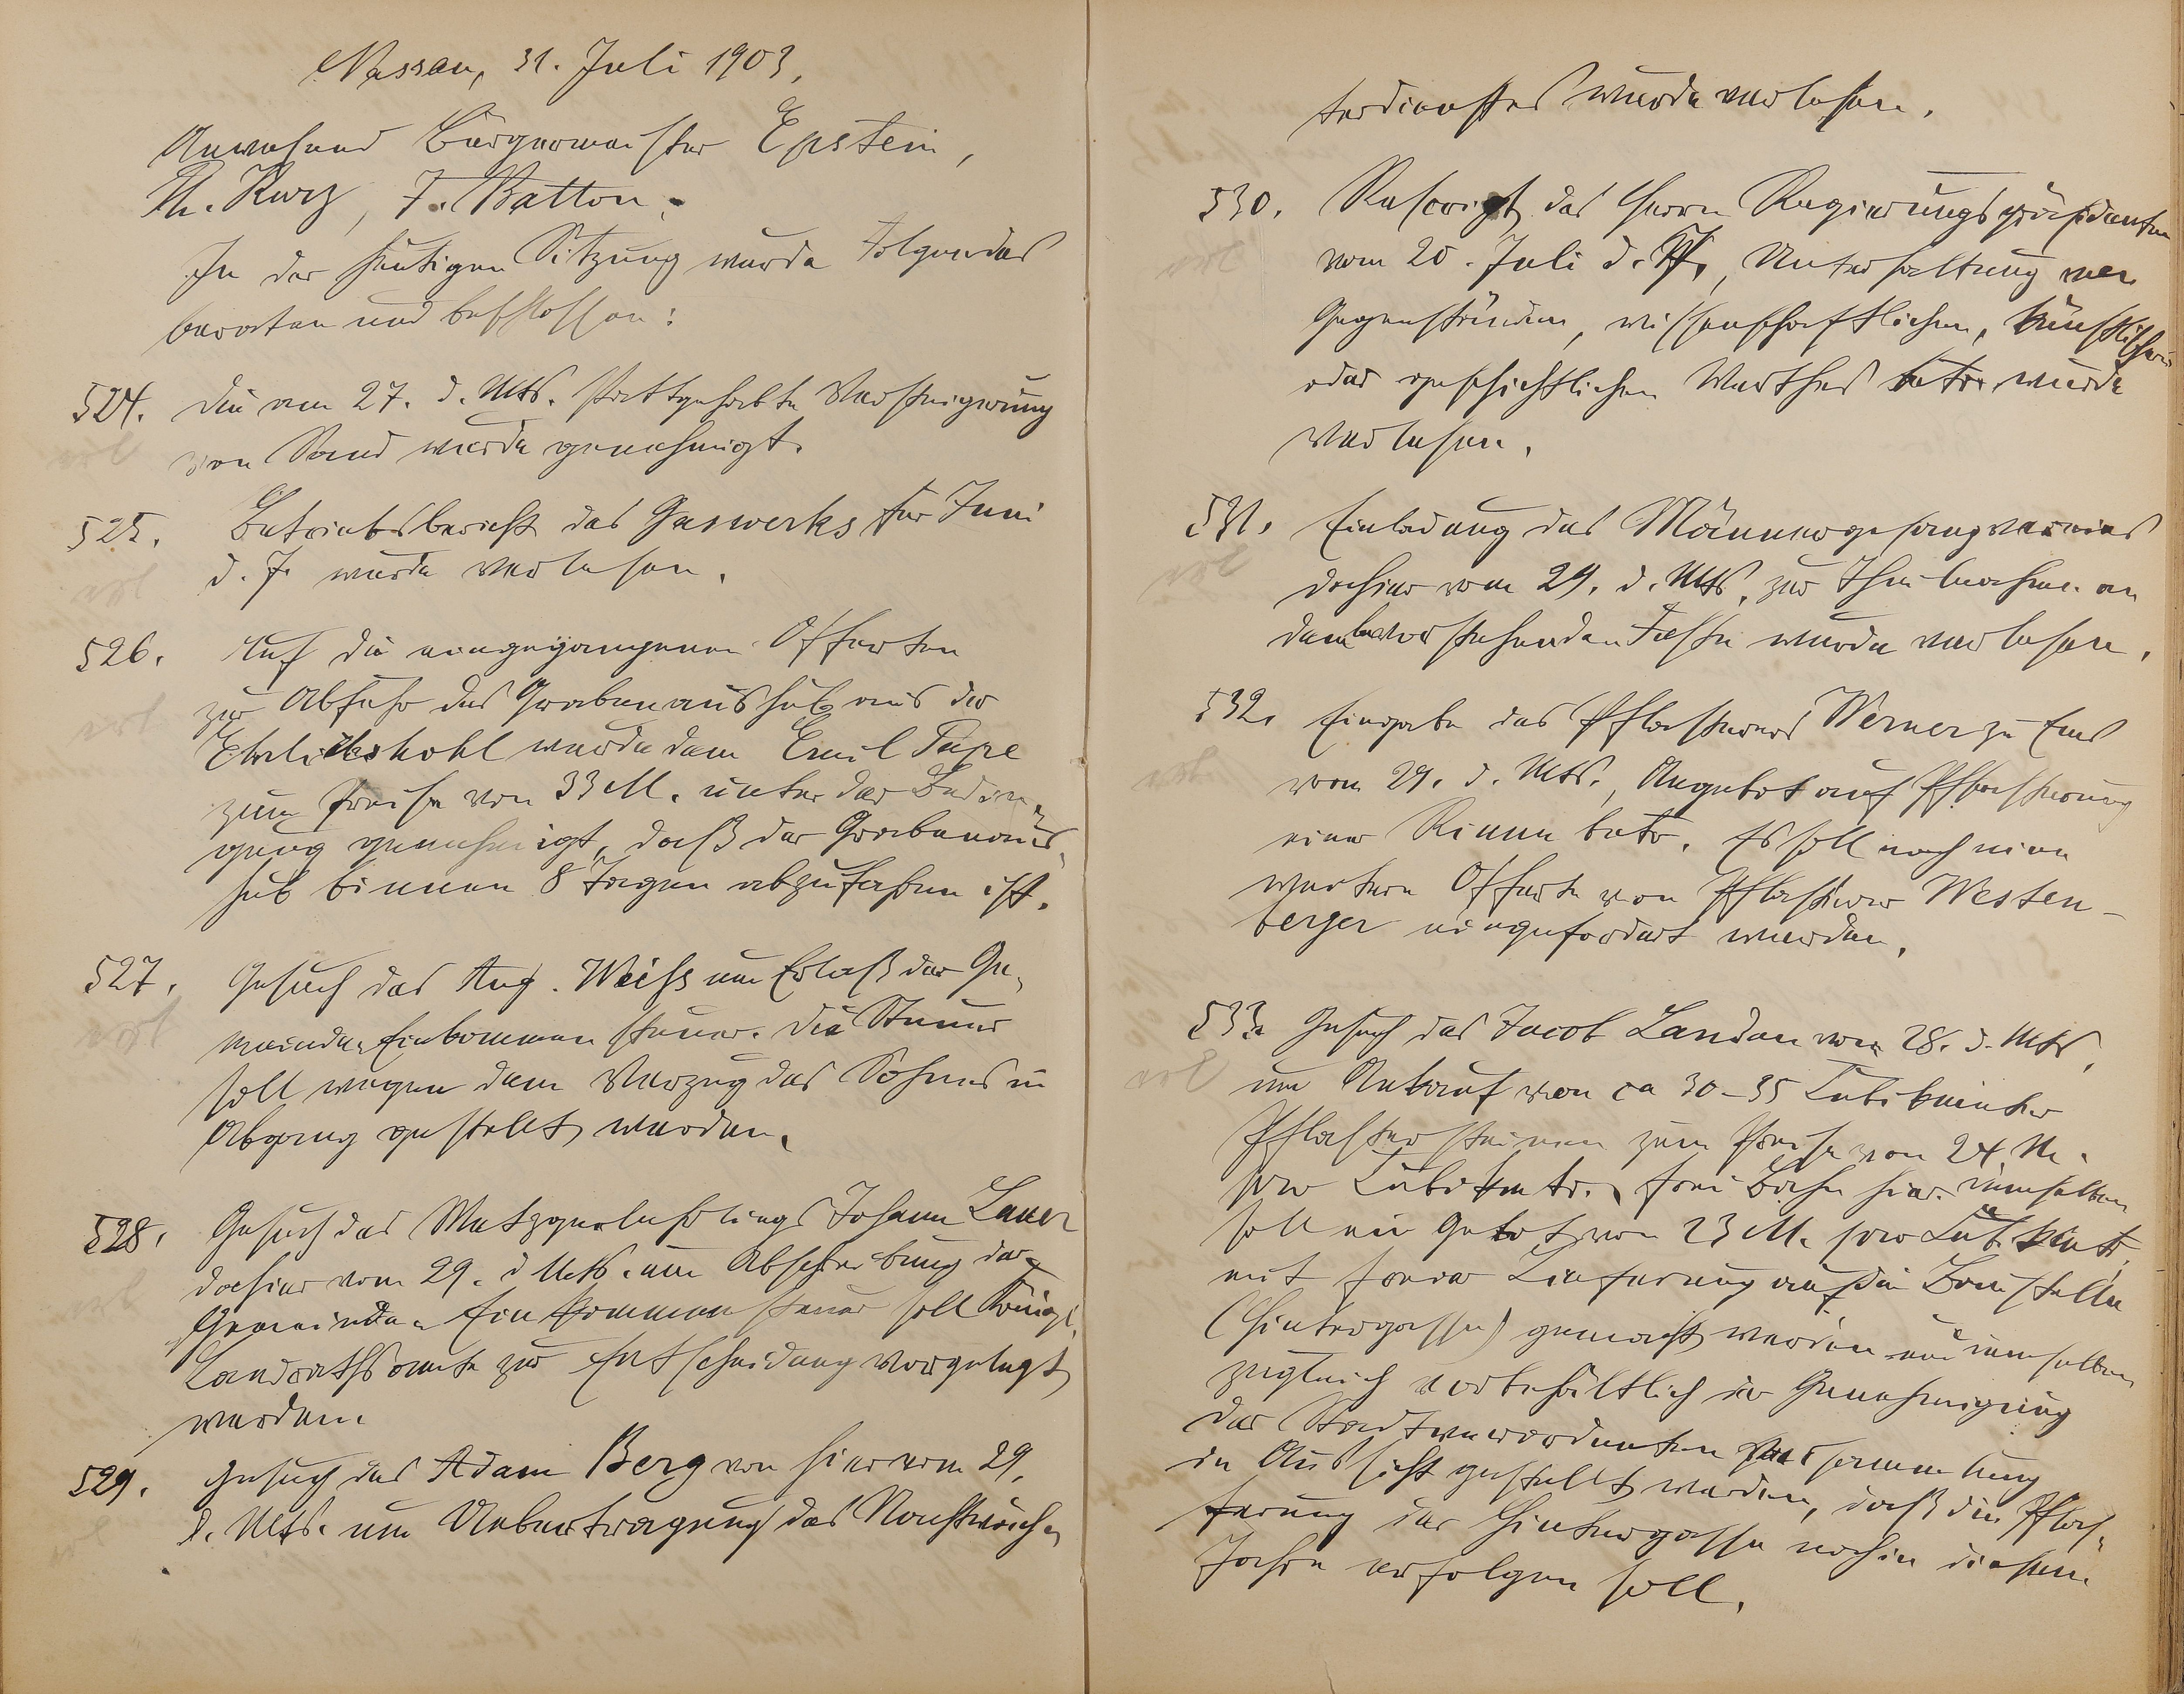 Nassau, 31. Juli 1903,
Anwesend Bürgermeister Epstein,
Th. Kurz, F. Batton.
In der heutigen Sitzung wurde Folgendes
beraten und beschlossen:
524. Die am 27. d. Mts. stattgehabte Versteigerung
von Sand wurde genehmigt.
525. Betriebsbericht des Gaswerks für Juni
d. J. wurde verlesen.
526. Auf die eingegangenen Offerten
zur Abfuhr des Grabenaushub aus der
wurde dem Emil Pape
zum Preise von 33 M. unter der Bedin-
gung genehmigt, daß der Grabenaus-
hub binnen 8 Tagen abzufahren ist.
527. Gesuch des Aug. Weiss um Erlaß der Ge-
meinde-Einkommensteuer. Die Steuer
soll wegen dem Verzug des Sohnes in
Abgang gestellt werden.
528. Gesuch des Metzgerlehrlings Johann Lauer
dahier vom 29. d Mts. um Abschreibung der
Gemeinde-Einkommensteuer soll Königl.
Landrathsamte zur Entscheidung vorgelegt
werden.
529. Gesuch des Adam Berg von hier vom 29.
d. Mts. um Uebertragung des Nachtwäch-
terdienstes wurde verlesen.
530. Rescript des Herrn Regierungspräsidenten
vom 20. Juli d. Js., Unterhaltung von
Gegenständen, wissenschaftlichen, künstlischen
oder geschichtlichen Werthes betr. wurde
verlesen.
531. Einladung des Männergesangvereins
dahier vom 29. d. Mts. zur Theilnahme an
dem bevorstehenden Feste wurde verlesen.
532. Eingabe des Pflasterers Werner zu Ems
vom 29. d. Mts., Angebot auf Pflasterung
einer Rinne betr. Es soll noch eine
weitere Offerte von Pflasterer Westen-
berger eingefordert werden.
533. Gesuch des Jacob Landau vom 28. d. Mts.
um Ankauf von ca 30-35 Cubikmeter
Pflastersteinen zum Preise von 24 M.
pro Cubikmtr. frei Bahn hier. Demselben
soll ein Gebot von 23 M. pro Cub. Kmtr.
mit freier Lieferung auf die Baustelle
(Hintergasse) gemacht werden und demselben
zugleich vorbehältlich der Genehmigung
der Stadtverordneten Versammlung
in Aussicht gestellt werden, daß die Pflas-
terung der Hintergasse noch in diesem
Jahre erfolgen soll.